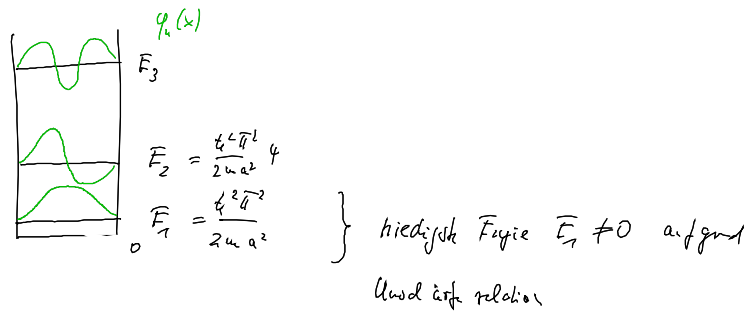 φₙ(x)
E₃
E₂ = ħ²π²/2ma² 4
E₁ = ħ²π²/2ma²
0
} niedrigste Energie E₁ ≠ 0 aufgrund
Unschärferelation